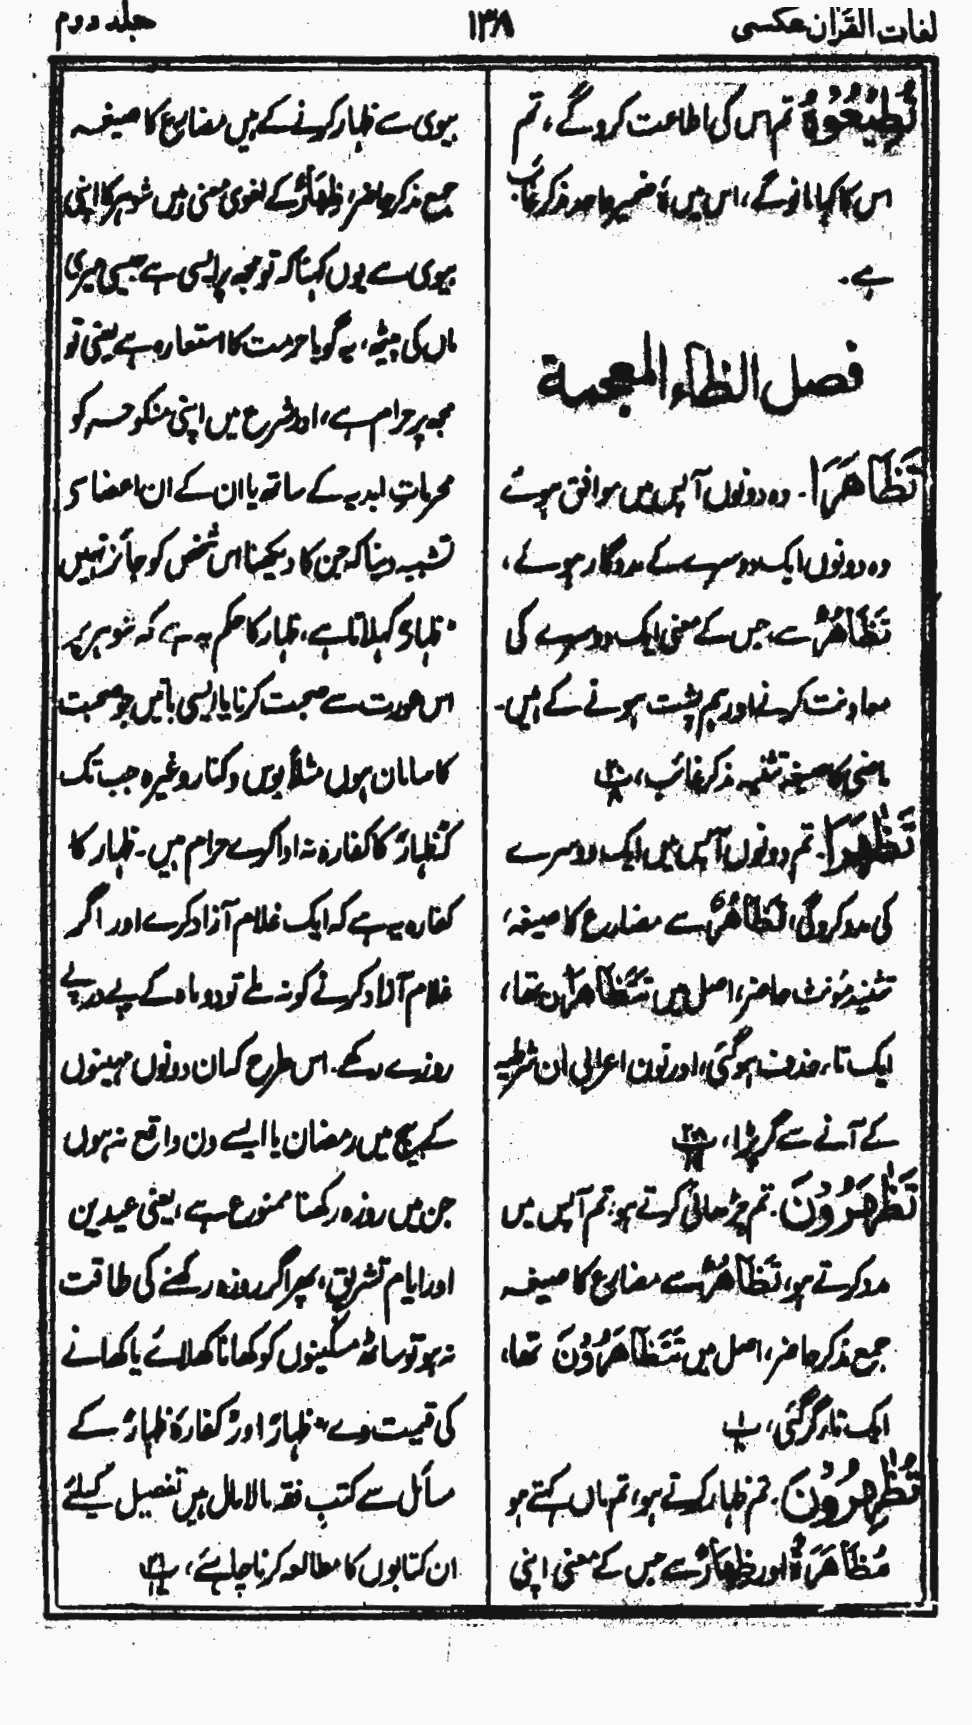 لغات القرآن عکسی
۱۳۸
جلد دوم
تُطِيْعُوْهُ تم اس کی اطاعت کروگے، تم
اس کا کہا مانوگے، اس میں ہٗ ضمیر واحد مذکر غائب
ہے۔
فصل الظاء المعجمة
تَظَاهَرَا۔ وہ دونوں آپس میں موافق ہوئے
وہ دونوں ایک دوسرے کے مددگار ہوئے،
تَظَاهُرٌ سے، جس کے معنی ایک دوسرے کی
معاونت کرنے اور ہم پشت ہونے کے ہیں۔
ماضی کا صیغہ تثنیہ مذکر غائب،
تَظٰهَرَا۔ تم دونوں آپس میں ایک دوسرے
کی مدد کروگی، تَظَاهُرٌ سے مضارع کا صیغہ،
تثنیہ مؤنث حاضر، اصل میں تَتَظَاهَرَانِ تھا،
ایک تاء حذف ہوگئی، اور نون اعرابی اِن شرطیہ
کے آنے سے گر پڑا،
تَظٰهَرُوْنَ۔ تم چڑھائی کرتے ہو، تم آپس میں
مدد کرتے ہو، تَظَاهُرٌ سے مضارع کا صیغہ
جمع مذکر حاضر، اصل میں تَتَظَاهَرُوْنَ تھا،
ایک تاء گر گئی،
تُظٰهِرُوْنَ۔ تم ظہار کرتے ہو، تم ماں کہتے ہو
مُظَاهَرَةٌ اور ظِهَارٌ سے جس کے معنی اپنی
بیوی سے ظہار کرنے کے ہیں مضارع کا صیغہ
جمع مذکر حاضر، ظِهَارٌ کے لغوی معنی ہیں شوہر کا اپنی
بیوی سے یوں کہنا کہ تو مجھ پر ایسی ہے جیسی میری
ماں کی پیٹھ، یہ گویا حرمت کا استعارہ ہے یعنی تو
مجھ پر حرام ہے، اور شرع میں اپنی منکوحہ کو
محرمات ابدیہ کے ساتھ یا ان کے ان اعضا سی
تشبیہ دینا کہ جن کا دیکھنا اس شخص کو جائز نہیں
ظہار کہلاتا ہے، ظہار کا حکم یہ ہے کہ شوہر پر
اس عورت سے صحبت کرنا یا ایسی باتیں جو صحبت
کا سامان ہوں مثلاً بوس و کنار وغیرہ جب تک
کہ ظہار کا کفارہ نہ ادا کرے حرام ہیں۔ ظہار کا
کفارہ یہ ہے کہ ایک غلام آزاد کرے اور اگر
غلام آزاد کرنے کو نہ ملے تو دو ماہ کے پے در پے
روزے رکھے۔ اس طرح کہ ان دونوں مہینوں
کے بیچ میں رمضان یا ایسے دن واقع نہ ہوں
جن میں روزہ رکھنا ممنوع ہے، یعنی عیدین
اور ایام تشریق، پھر اگر روزہ رکھنے کی طاقت
نہ ہو تو ساٹھ مسکینوں کو کھانا کھلائے یا کھانے
کی قیمت دے۔ ظہار اور کفارۂ ظہار کے
مسائل سے کتب فقہ مالا مال ہیں تفصیل کیلئے
ان کتابوں کا مطالعہ کرنا چاہئے،